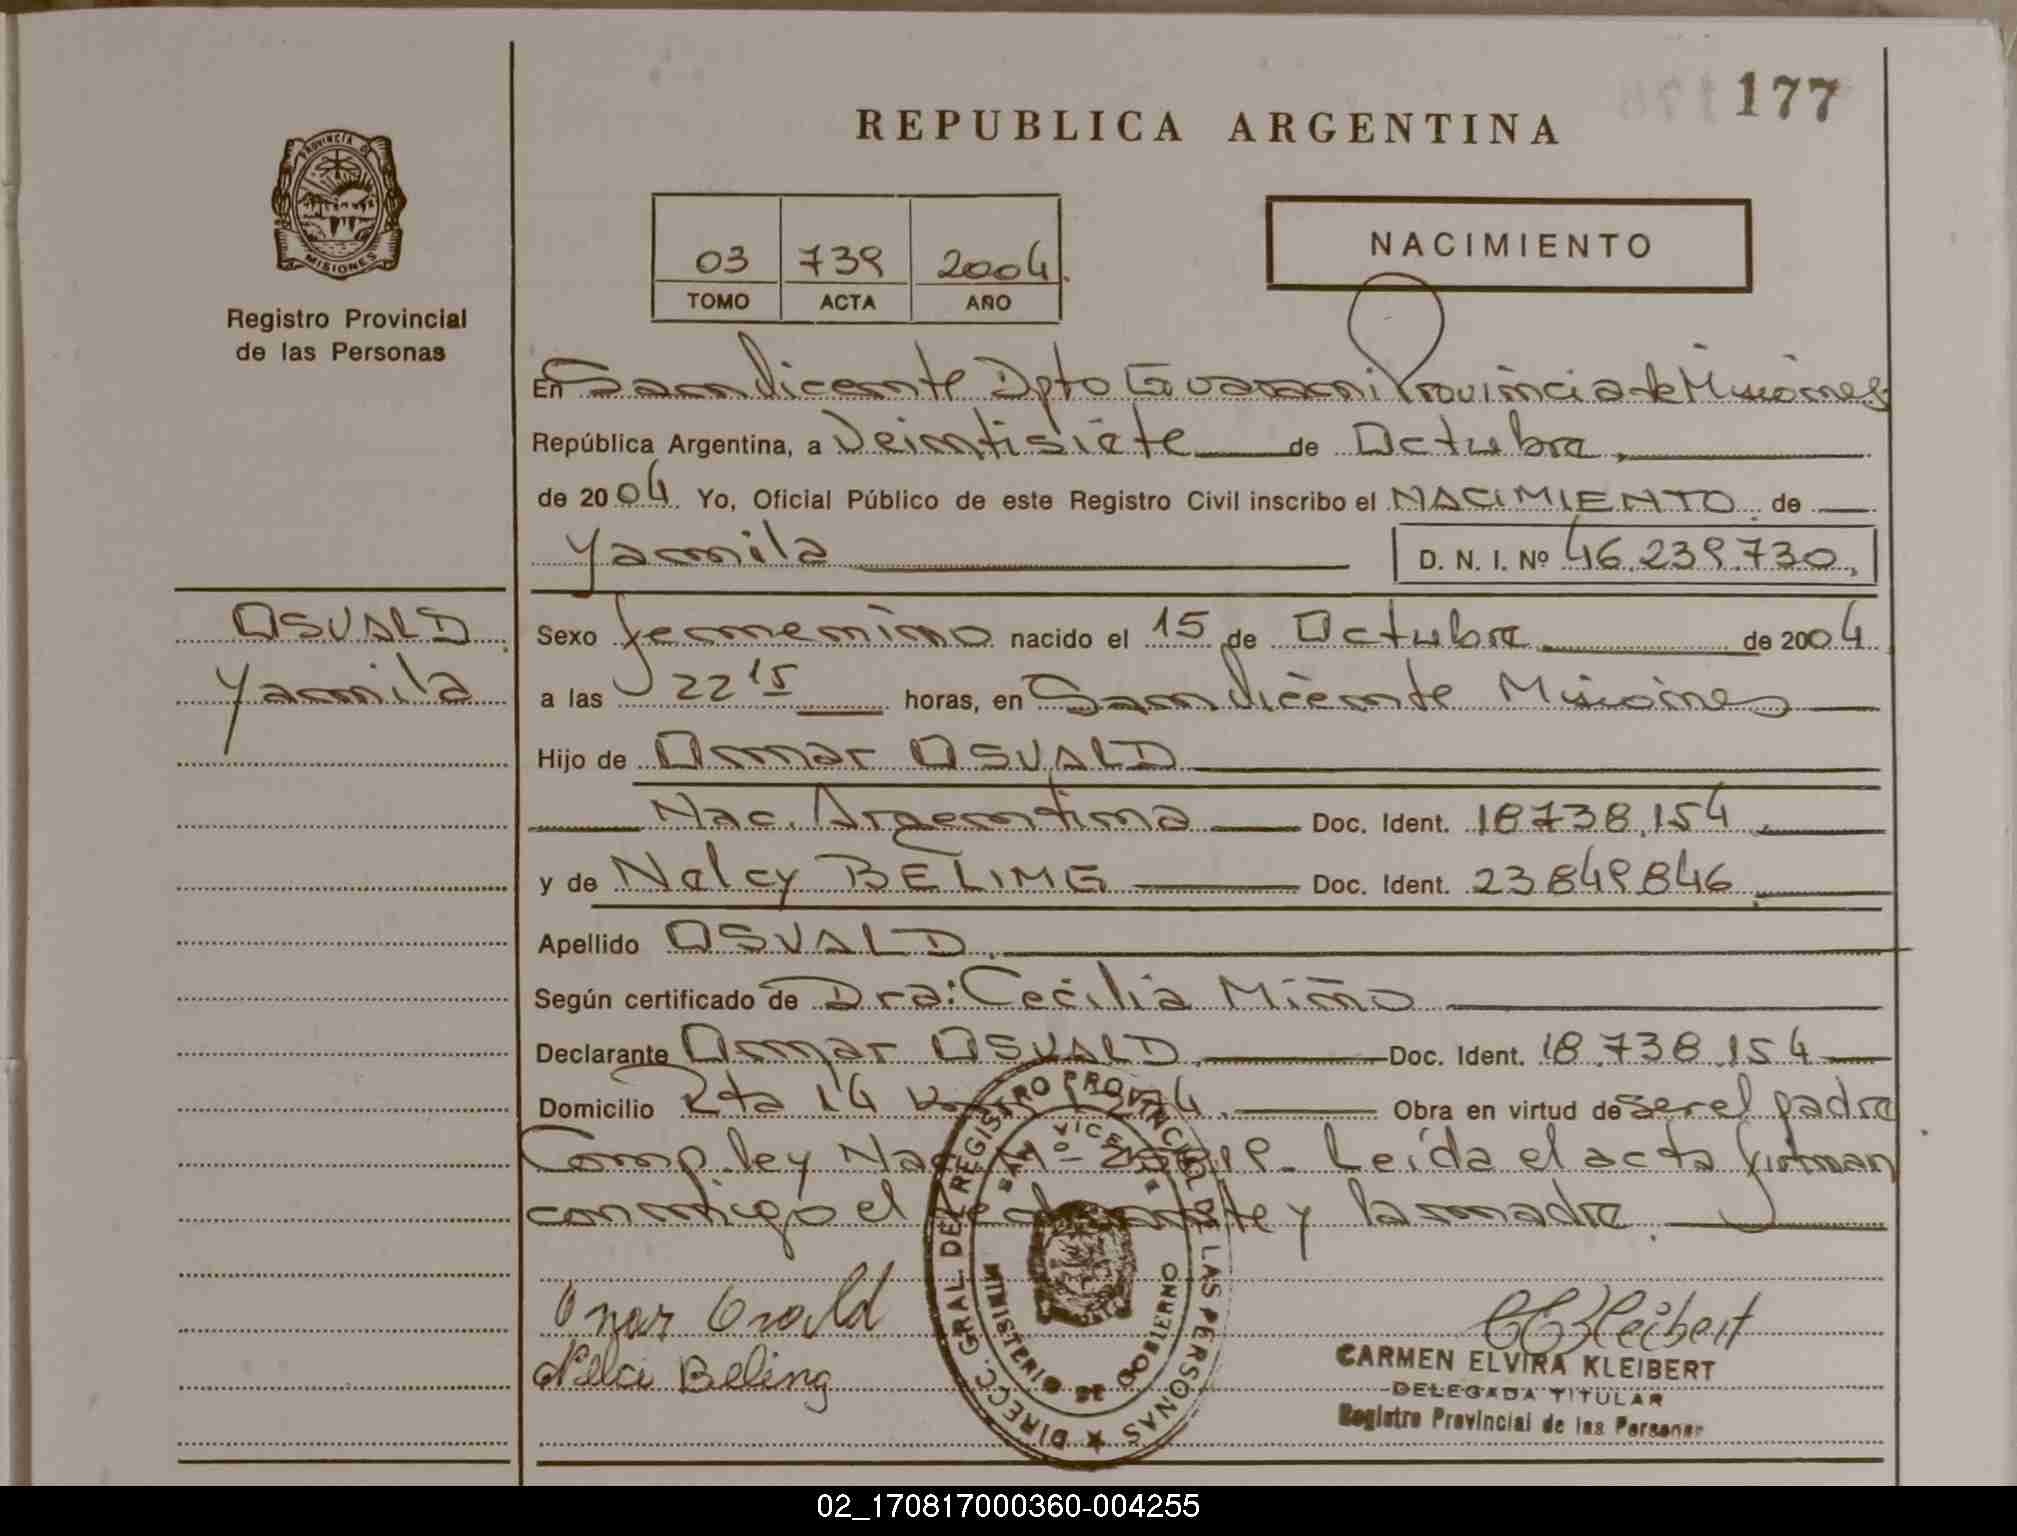 177
REPUBLICA ARGENTINA
PROVINCIA DE
MISIONES
Registro Provincial
de las Personas
03 739 2004.
TOMO ACTA AÑO
NACIMIENTO
En San Vicente Dpto Guarani Provincia de Misiones
República Argentina, a Veintisiete de Octubre,
de 2004. Yo, Oficial Público de este Registro Civil inscribo el NACIMIENTO de
Yamila D. N. I. Nº 46.239.730,
OSVALD
Yamila
Sexo femenino nacido el 15 de Octubre de 2004
a las 22 15 horas, en San Vicente Misiones
Hijo de Omar OSVALD
Nac. Argentina Doc. Ident. 18738.154
y de Nelcy BELING Doc. Ident. 23849846
Apellido OSVALD
Según certificado de Dra: Cecilia Miño
Declarante Omar OSVALD Doc. Ident. 18.738.154
Domicilio Rta 14 Obra en virtud de ser el padre
Comp. ley Nac Nº Leída el acta firman
conmigo el declarante y la madre.
DIRECC. GRAL. DEL REGISTRO PROVINCIAL DE LAS PERSONAS
SAN VICENTE
MINISTERIO DE GOBIERNO
Omar Osvald
Nelci Beling
CKleibert
CARMEN ELVIRA KLEIBERT
DELEGADA TITULAR
Registro Provincial de las Personas
02_170817000360-004255